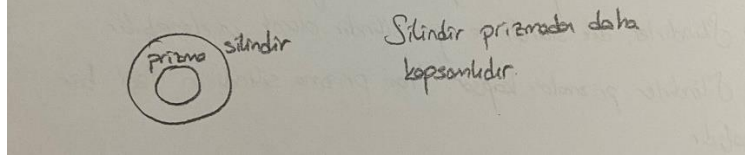 prizma silindir
Silindir prizmadan daha
kapsamlıdır.